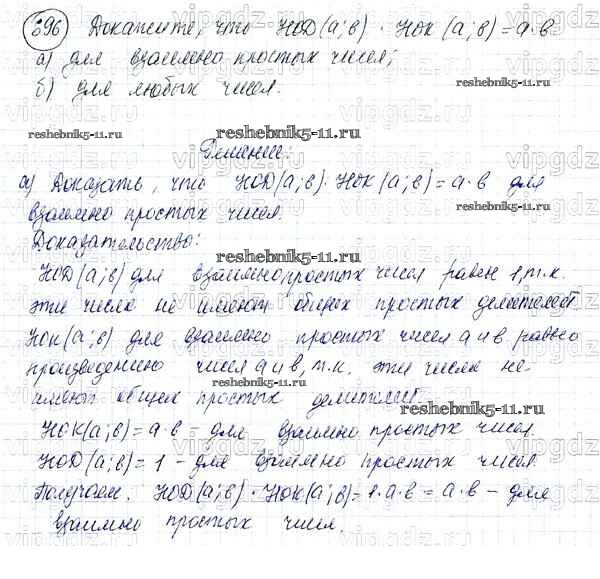 696 Докажите, что НОД(a;в) · НОК(a;в)=a·в
а) для взаимно простых чисел;
б) для любых чисел.
reshebnik5-11.ru
reshebnik5-11.ru
Решение:
а) Доказать, что НОД(a;в)·НОК(a;в)=a·в для
reshebnik5-11.ru
взаимно простых чисел.
Доказательство:
reshebnik5-11.ru
НОД(a;в) для взаимно простых чисел равен 1, т.к.
эти числа не имеют общих простых делителей.
НОК(a;в) для взаимно простых чисел a и в равно
произведению чисел a и в, т.к. эти числа не
reshebnik5-11.ru
имеют общих простых делителей.
reshebnik5-11.ru
НОК(a;в)=a·в - для взаимно простых чисел.
НОД(a;в)=1 - для взаимно простых чисел.
Получаем: НОД(a;в)·НОК(a;в)=1·a·в=a·в - для
взаимно простых чисел.
reshebnik5-11.ru